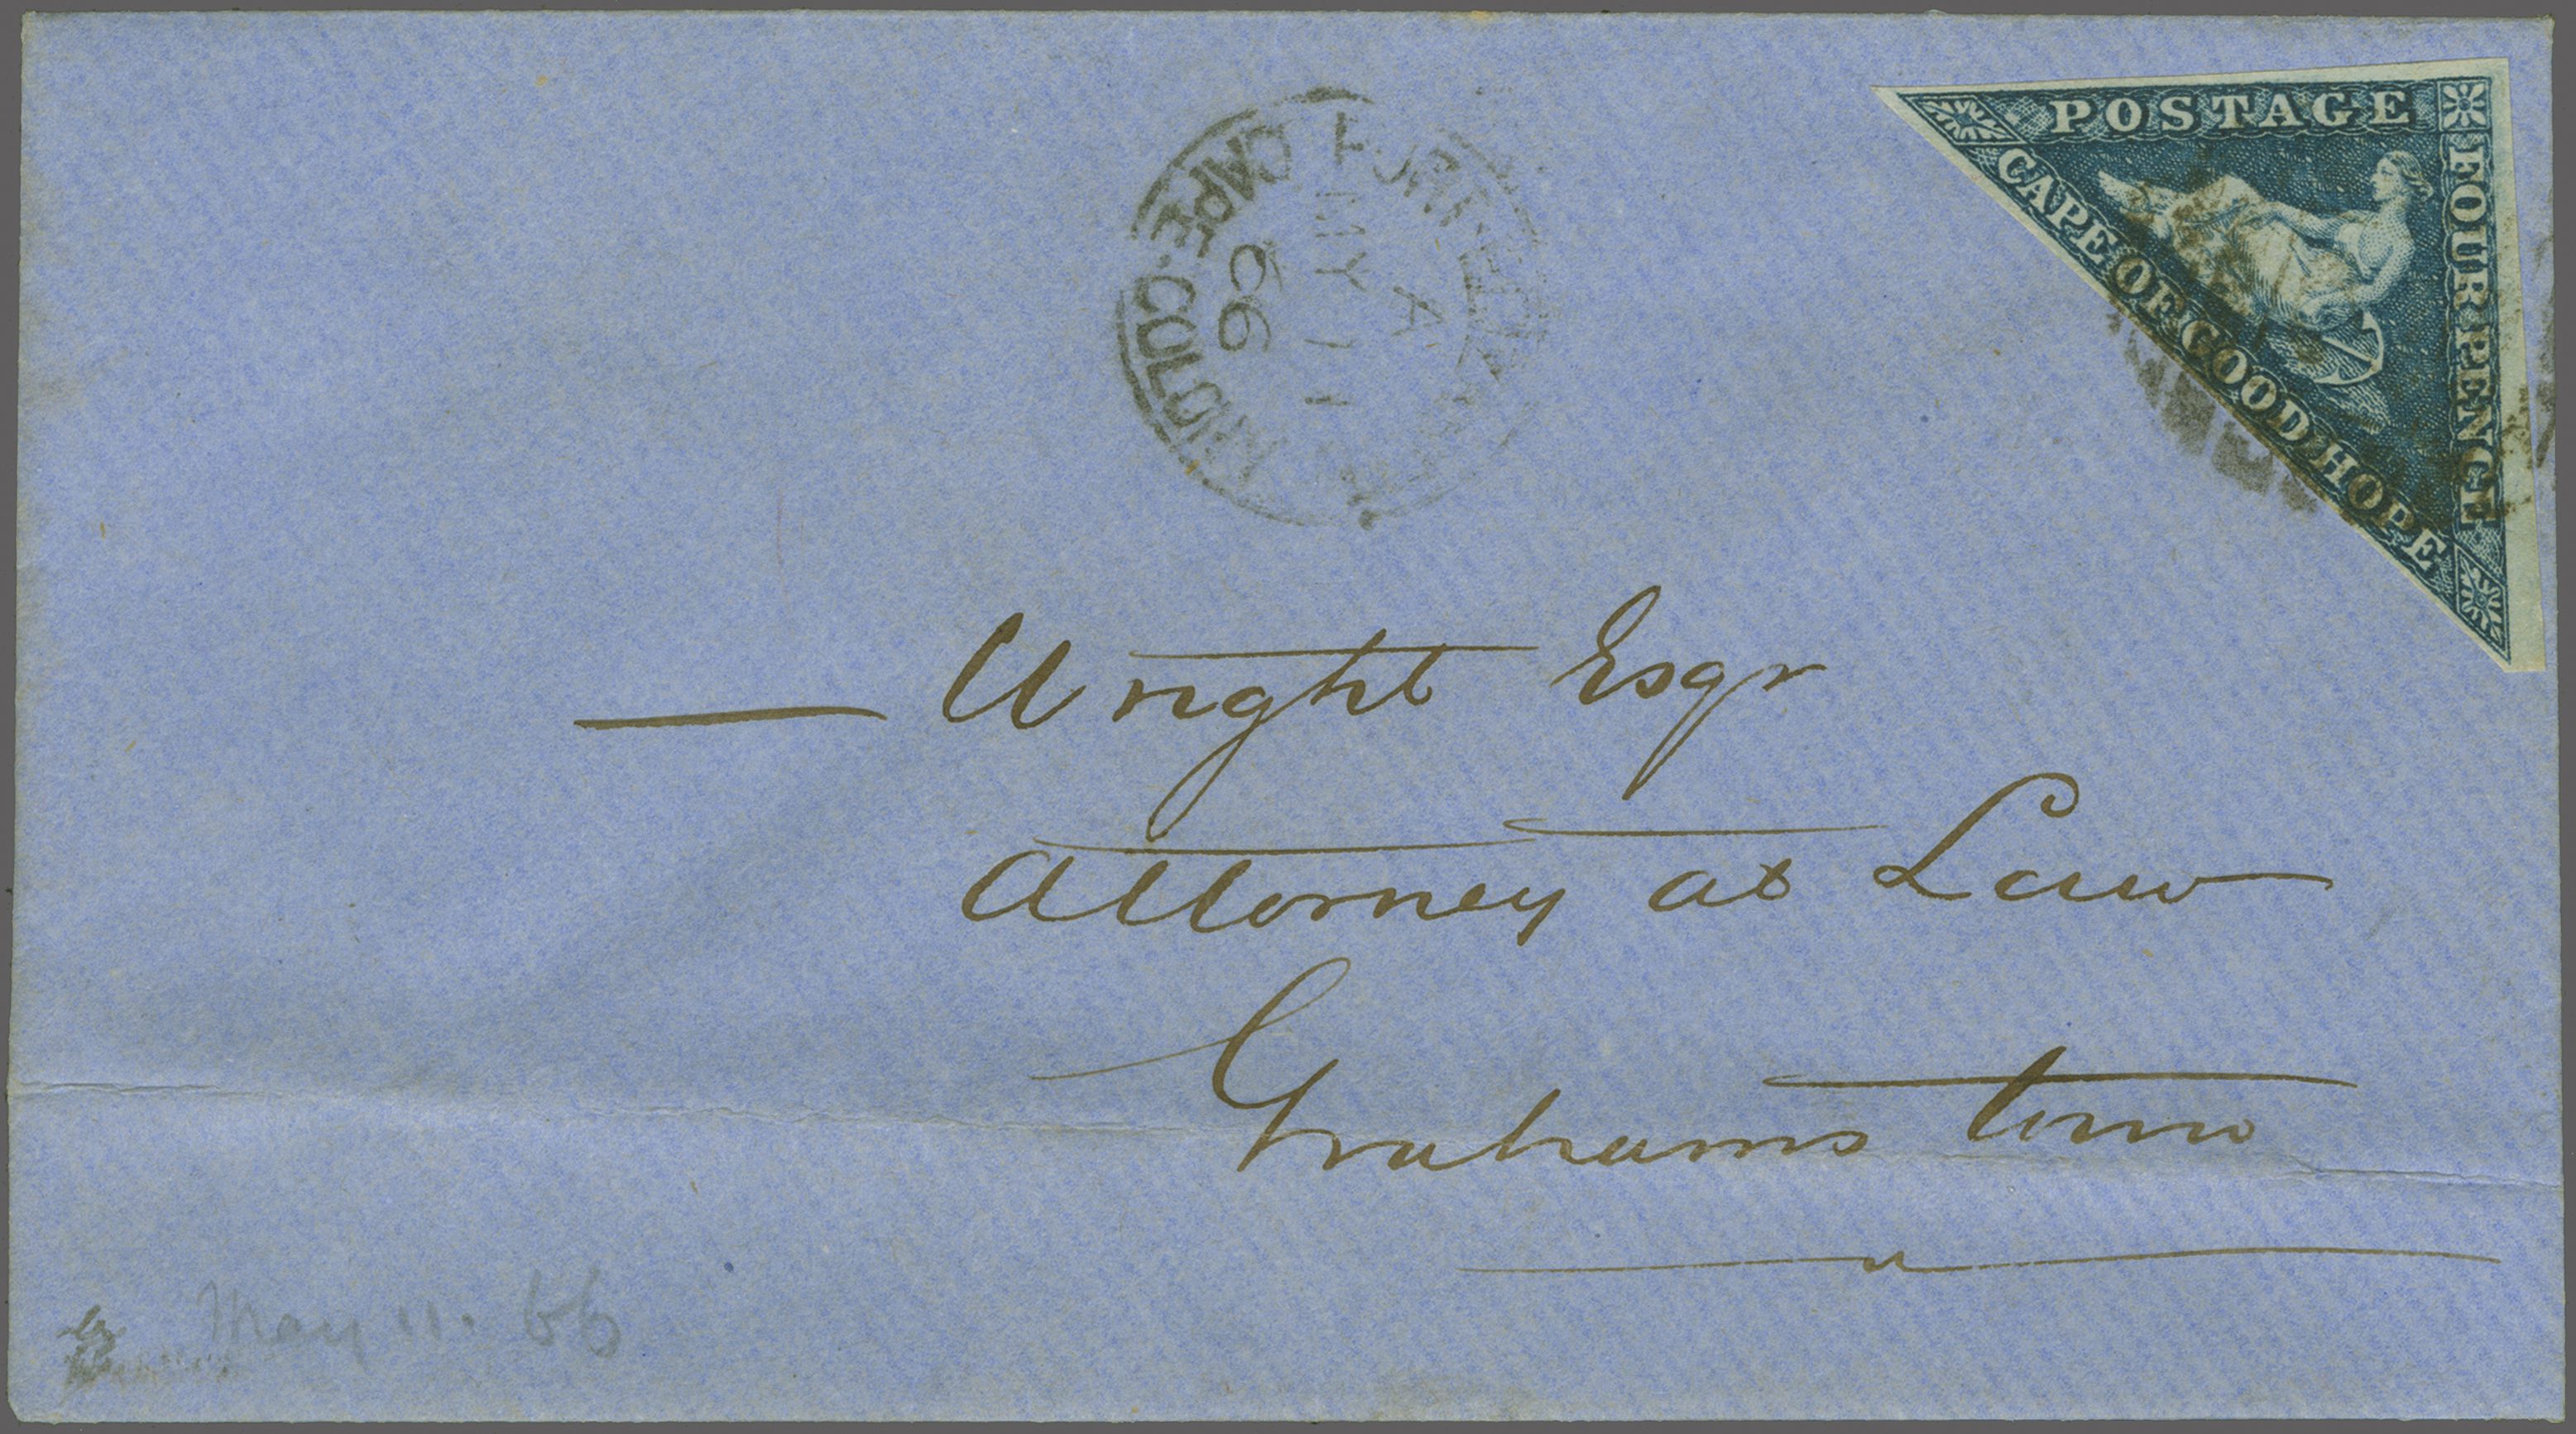 POSTAGE
FOUR PENCE
CAPE OF GOOD HOPE
CAPE·COLONY
A
MY 11
66
Wright Esqr
Attorney at Law
Grahams town
May 11. 66